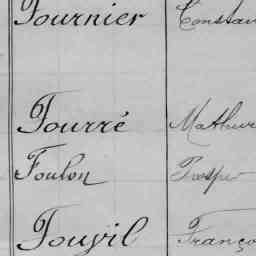 Fournier Constan
Fourré Mathur
Foulon Prosper
Franço